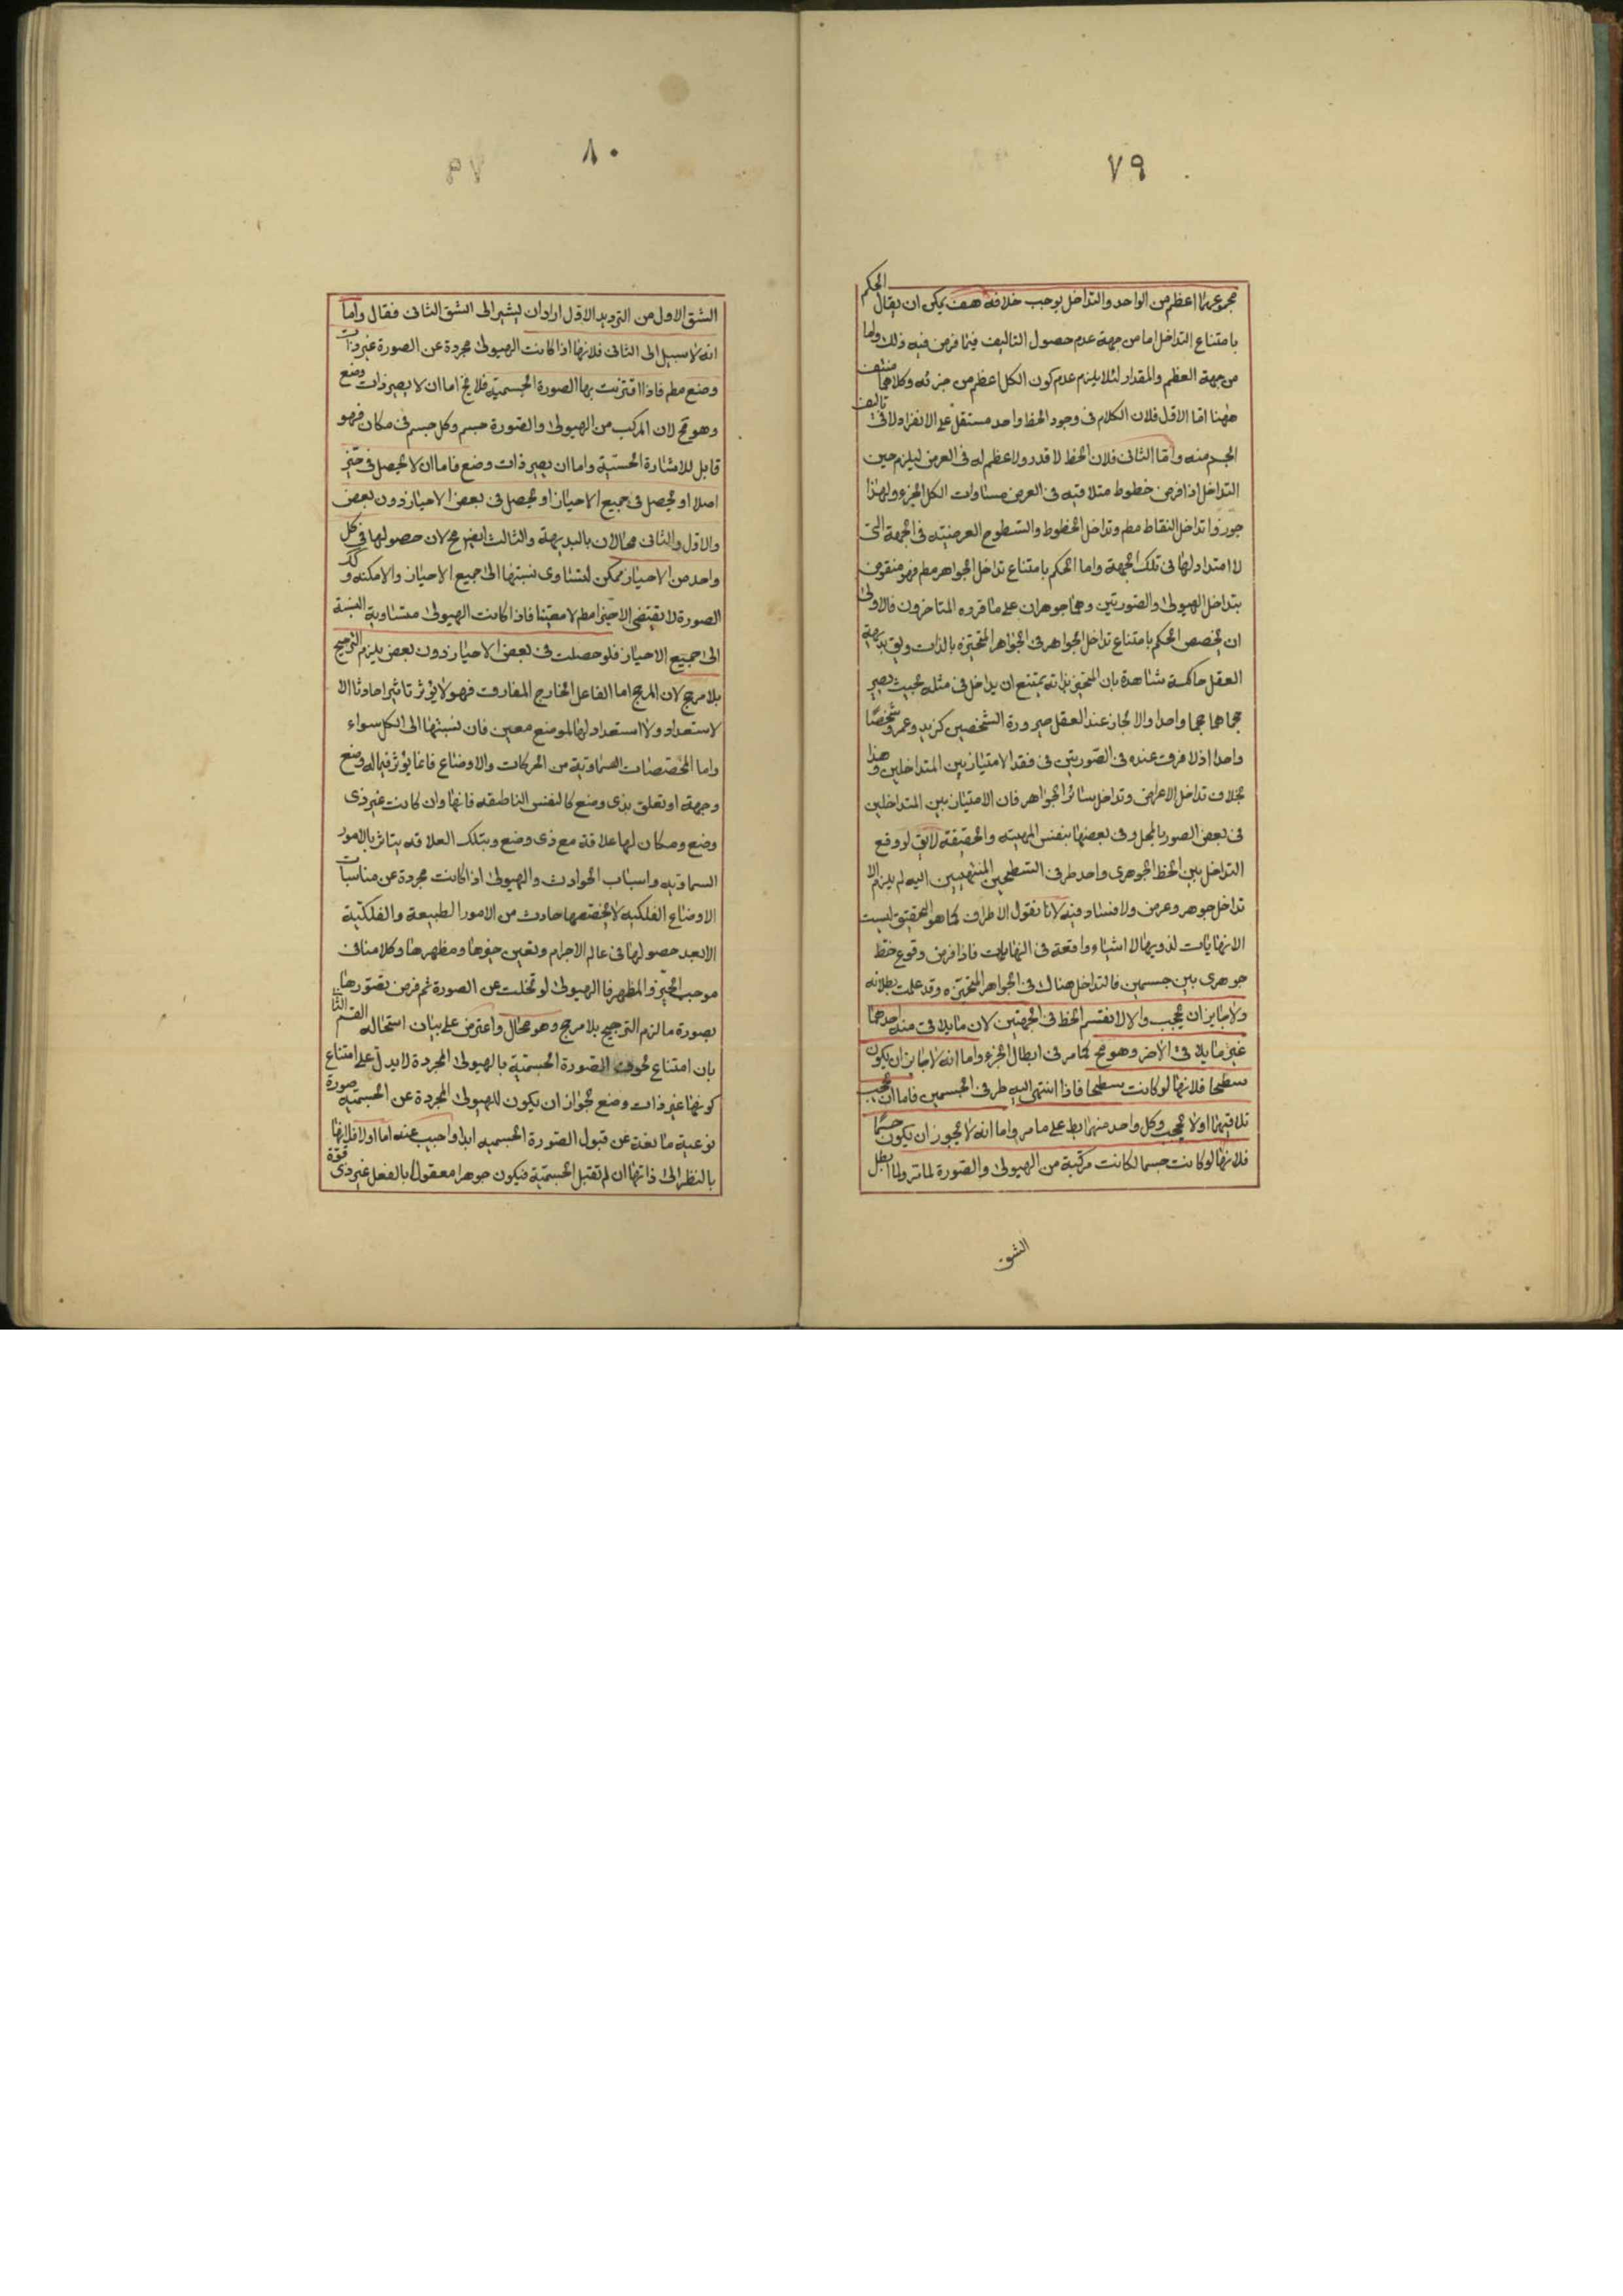 ٧٩
مجموعهما اعظم من الواحد والتداخل يوجب خلافه هف يمكن ان يقال الحكم
بامتناع التداخل اما من جهة عدم حصول التاليف فيما فرض فيه ذلك واما
من جهة العظم والمقدار لئلا يلزم عدم كون الكل اعظم من جزئه وكلاهما منتف
ههنا اما الاول فلان الكلام فى وجود الخط واحد مستقل على الانفراد لا فى تاليف
الجسم منه واما الثانى فلان الخط لا قدر ولا عظم له فى العرض ليلزم حين
التداخل اذا فرض خطوط متلاقيه فى العرض مساوات الكل الجزء ولهذا
جوزوا تداخل النقاط مطم وتداخل الخطوط والسطوح العرضيته فى الجهة التى
لا امتداد لها فى تلك الجهة واما الحكم بامتناع تداخل الجواهر مطم فهو منقوض
بتداخل الهيولى والصورتين وهما جوهران على ما قرره المتاخرون فالاولى
ان يخصص الحكم بامتناع تداخل الجواهر فى الجواهر المتحيزه بالذات ويق بديهة
العقل حاكمة شاهدة بان المتحيز بذاته يمتنع ان يداخل فى مثله بحيث يصير
حجماهما حجما واحدا والا لجاز عند العقل صيرورة الشخصين كزيد وعمرو شخصا
واحدا اذ لا فرق عنده فى الصورتين فى فقد الامتياز بين المتداخلين وهذا
بخلاف تداخل الاعراض وتداخل سائر الجواهر فان الامتياز بين المتداخلين
فى بعض الصور بالمحل وفى بعضها بنفس المهيته والحقيقة لايق لو وقع
التداخل بين الخط الجوهرى واحد طرفى السطحين المنتهيين اليه لم يلزم الا
تداخل جوهر وعرض ولا فساد فيه لانا نقول الاطراف كما هو التحقيق ليست
الا نهايات لذويها لا اشياء واقعة فى النهايات فاذا فرض وقوع خط
جوهرى بين جسمين فالتداخل هناك فى الجواهر المتحيزه وقد علمت بطلانه
ولا جايز ان يحجب والا لانقسم الخط فى الجهتين لان ما يلاقى منه احدهما
غير ما يلاقى الاخر وهو مح كما مر فى ابطال الجزء واما انه لا جايز ان يكون
سطحا فلانها لو كانت سطحا فاذا انتهى اليه طرفى الجسمين فاما ان يحجب
تلاقيهما اولا يحجب وكل واحد منهما بط على ما مر واما انه لا يجوز ان يكون جسما
فلانها لو كانت جسما لكانت مركبة من الهيولى والصورة لما مر ولما ابطل
الشق
٨٠
الشق الاول من الترديد الاول اراد ان يشير الى الشق الثانى فقال واما
انه لا سبيل الى الثانى فلانها اذا كانت الهيولى مجردة عن الصورة غير ذات
وضع مطم فاذا اقترنت بها الصورة الجسمية فلا يخ اما ان لا يصير ذات وضع
وهو مح لان المركب من الهيولى والصورة جسم وكل جسم فى مكان فهو
قابل للاشارة الحسية واما ان يصير ذات وضع فاما ان لا يحصل فى حيز
اصلا او يحصل فى جميع الاحياز او يحصل فى بعض الاحياز دون بعض
والاول والثانى محالان بالبديهة والثالث ايضر مح لان حصولها فى كل
واحد من الاحياز ممكن لتساوى نسبتها الى جميع الاحياز والامكنه وكذ
الصورة لا يقتضى الا حيزا مطم لا معينا فاذا كانت الهيولى متساوية النسبة
الى جميع الاحياز فلو حصلت فى بعض الاحياز دون بعض يلزم الترجيح
بلا مرجح لان المرجح اما الفاعل الخارج المفارق فهو لا يؤثر تاثيرا حادثا الا
لاستعداد ولا استعداد لها لموضع معين فان نسبتها الى الكل سواء
واما المخصصات السماوية من الحركات والاوضاع فانما يؤثر فيما له وضع
وجهة او تعلق بذى وضع كالنفس الناطقه فانها وان كانت غير ذى
وضع ومكان لها علاقة مع ذى وضع وبتلك العلاقه يتاثر بالامور
السماويه واسباب الحوادث والهيولى اذا كانت مجردة عن مناسبات
الاوضاع الفلكيه لا يخصصها حادث من الامور الطبيعة والفلكية
الا بعد حصولها فى عالم الاجرام وتعين حيزها ومظهرها وكلامنا فى
موجب الحيز والمظهر فا الهيولى لو تخلت عن الصورة ثم فرض تصورها
بصورة ما لزم الترجيح بلا مرجح وهو محال واعترض على بيان استحاله القسم الثا
بان امتناع لحوق الصورة الجسمية بالهيولى المجردة لا يدل على امتناع
كونها غير ذات وضع لجواز ان يكون للهيولى المجردة عن الجسمية صورة
نوعية مانعة عن قبول الصورة الجسميه ابدا واجيب عنه اما اولا فلانها
بالنظر الى ذاتها ان لم تقبل الجسمية فيكون جوهرا معقولا بالفعل غير ذى قوة